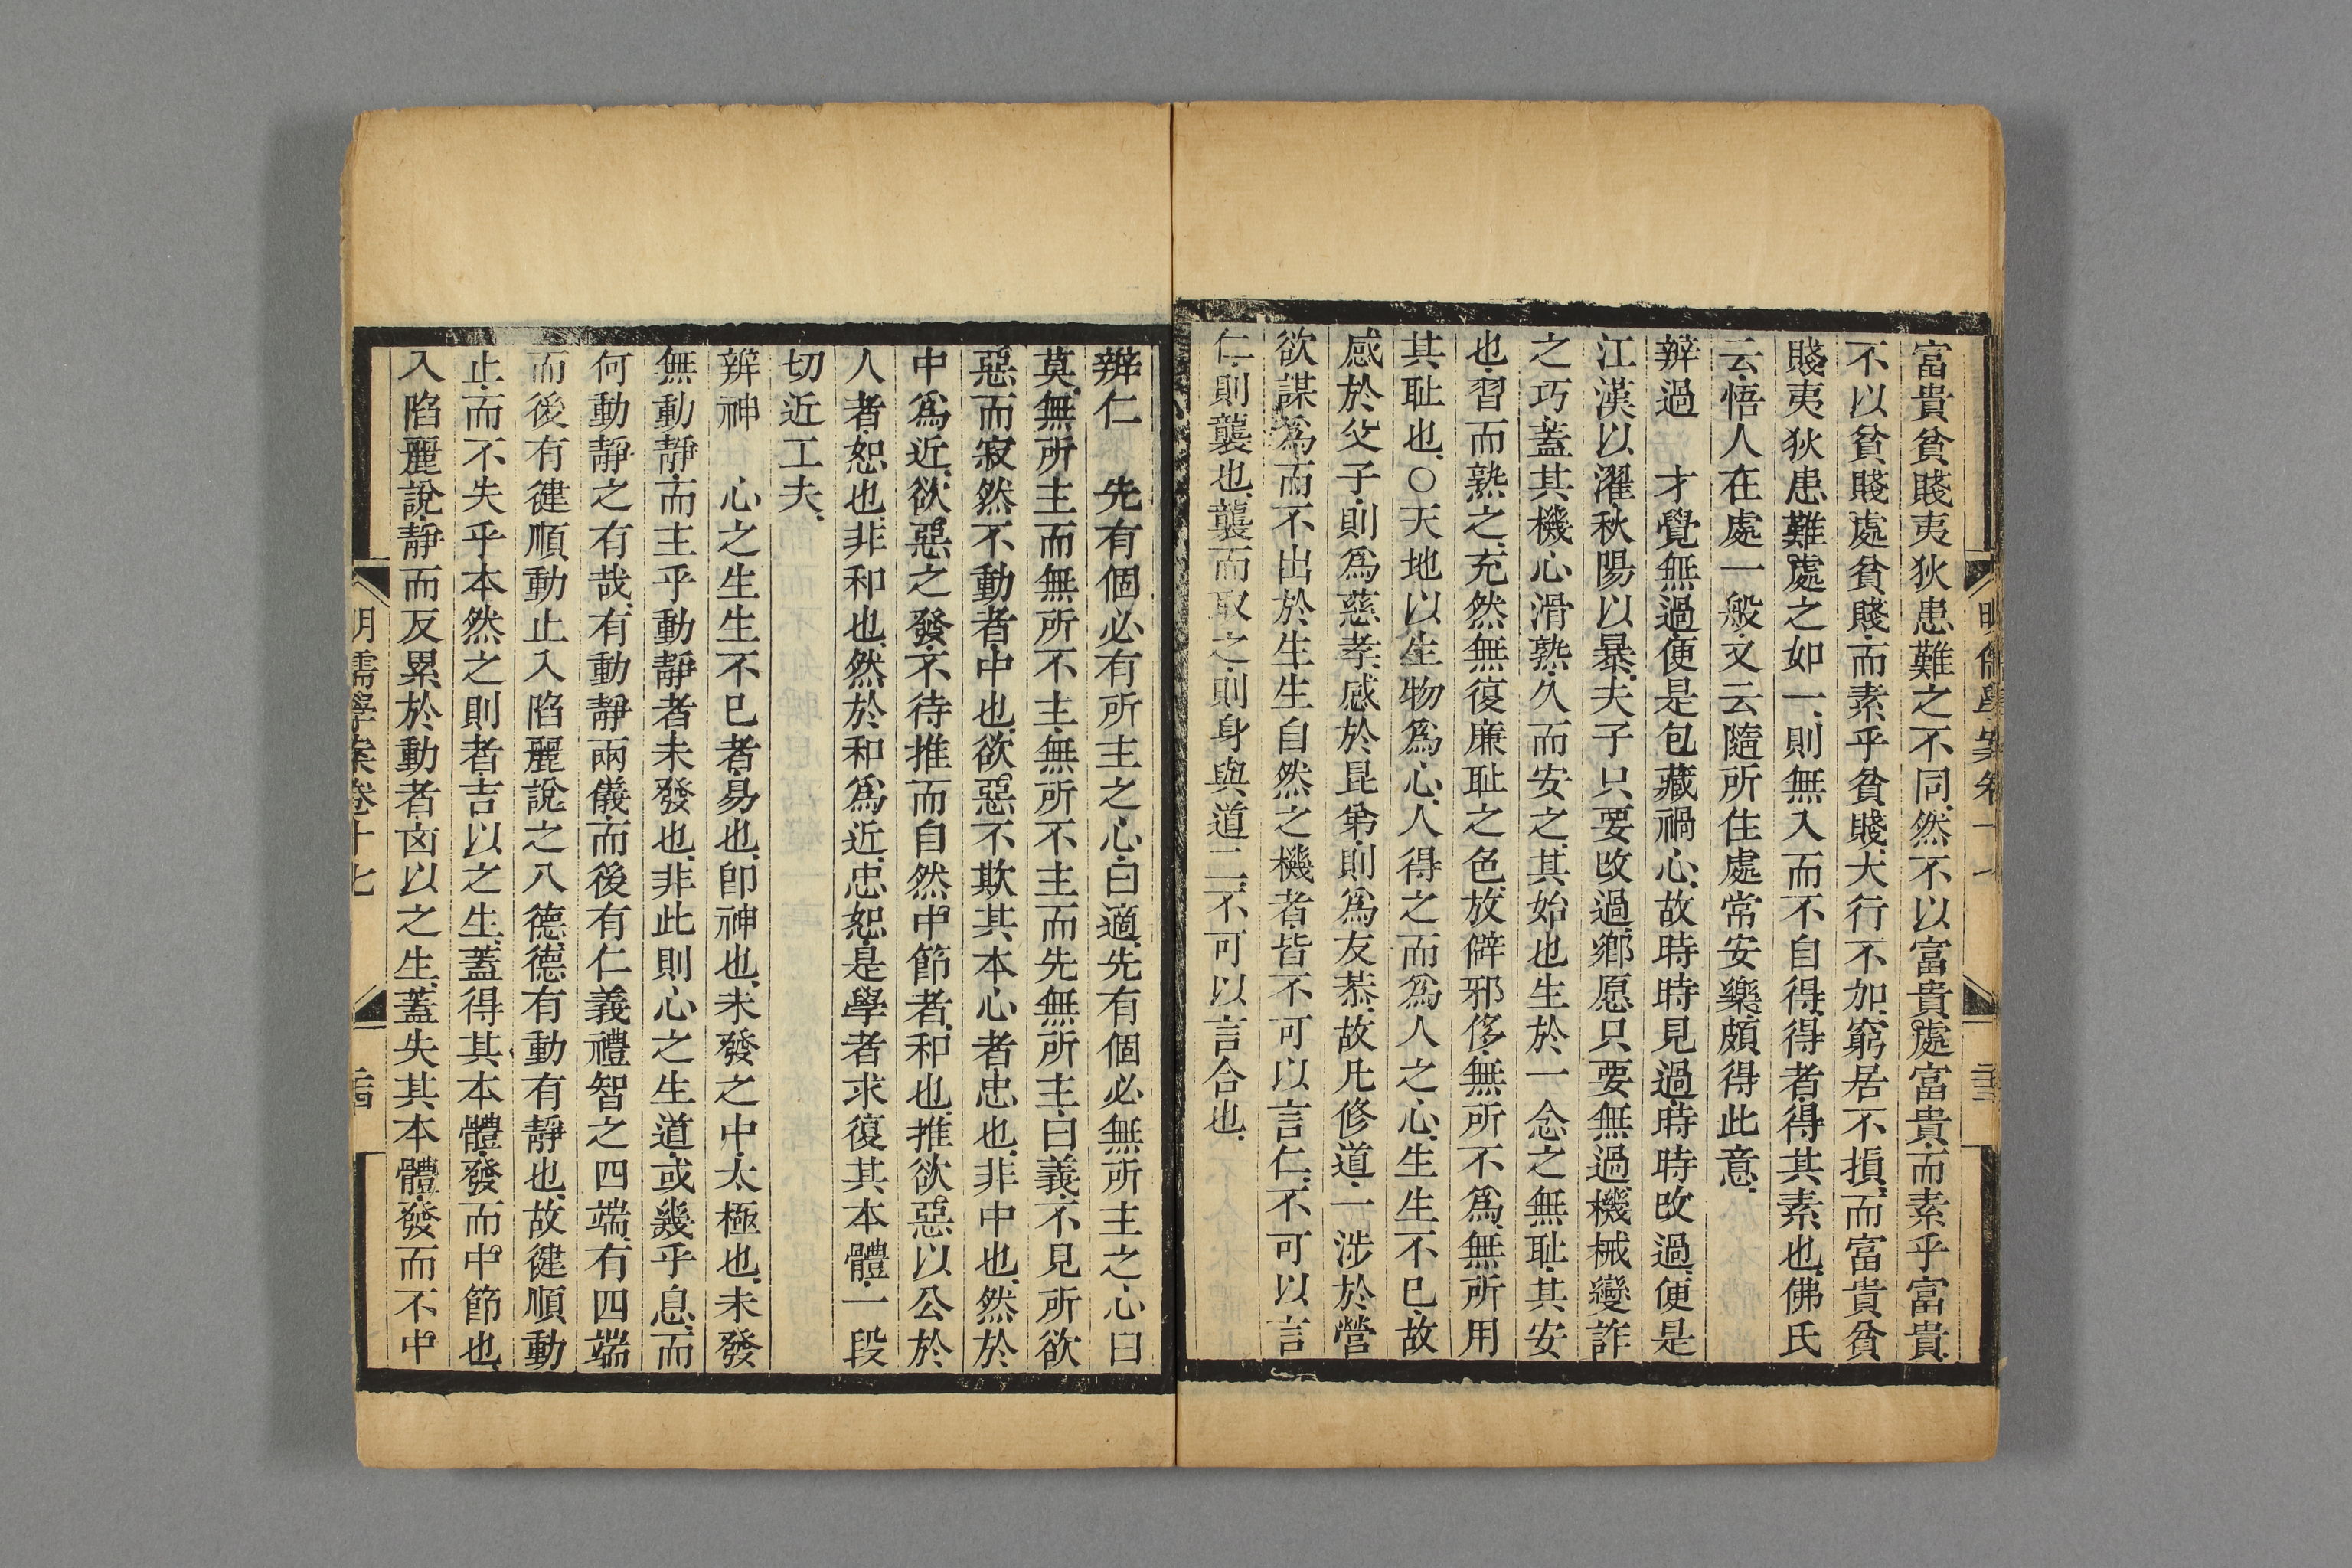 富貴貧賤夷狄患難之不同然不以富貴處富貴而素乎富貴
不以貧賤處貧賤而素乎貧賤大行不加窮居不損而富貴貧
賤夷狄患難處之如一則無入而不自得得者得其素也佛氏
云悟人在處一般又云隨所住處常安樂頗得此意
辨過　才覺無過便是包藏禍心故時時見過時時改過便是
江漢以濯秋陽以暴夫子只要改過鄉愿只要無過機械變詐
之巧蓋其機心滑熟久而安之其始也生於一念之無耻其安
也習而熟之充然無復廉耻之色放僻邪侈無所不爲無所用
其耻也○天地以生物爲心人得之而爲人之心生生不已故
感於父子則爲慈孝感於昆弟則爲友恭故凡修道一涉於營
欲謀爲而不出於生生自然之機者皆不可以言仁不可以言
仁則襲也襲而取之則身與道二不可以言合也
辨仁　先有個必有所主之心曰適先有個必無所主之心曰
莫無所主而無所不主無所不主而先無所主曰義不見所欲
惡而寂然不動者中也欲惡不欺其本心者忠也非中也然於
中爲近欲惡之發不待推而自然中節者和也推欲惡以公於
人者恕也非和也然於和爲近忠恕是學者求復其本體一段
切近工夫
辨神　心之生生不已者易也卽神也未發之中太極也未發
無動靜而主乎動靜者未發也非此則心之生道或幾乎息而
何動靜之有哉有動靜兩儀而後有仁義禮智之四端有四端
而後有健順動止入陷麗說之八德德有動有靜也故健順動
止而不失乎本然之則者吉以之生蓋得其本體發而中節也
入陷麗說靜而反累於動者凶以之生蓋失其本體發而不中
明儒學案卷十七